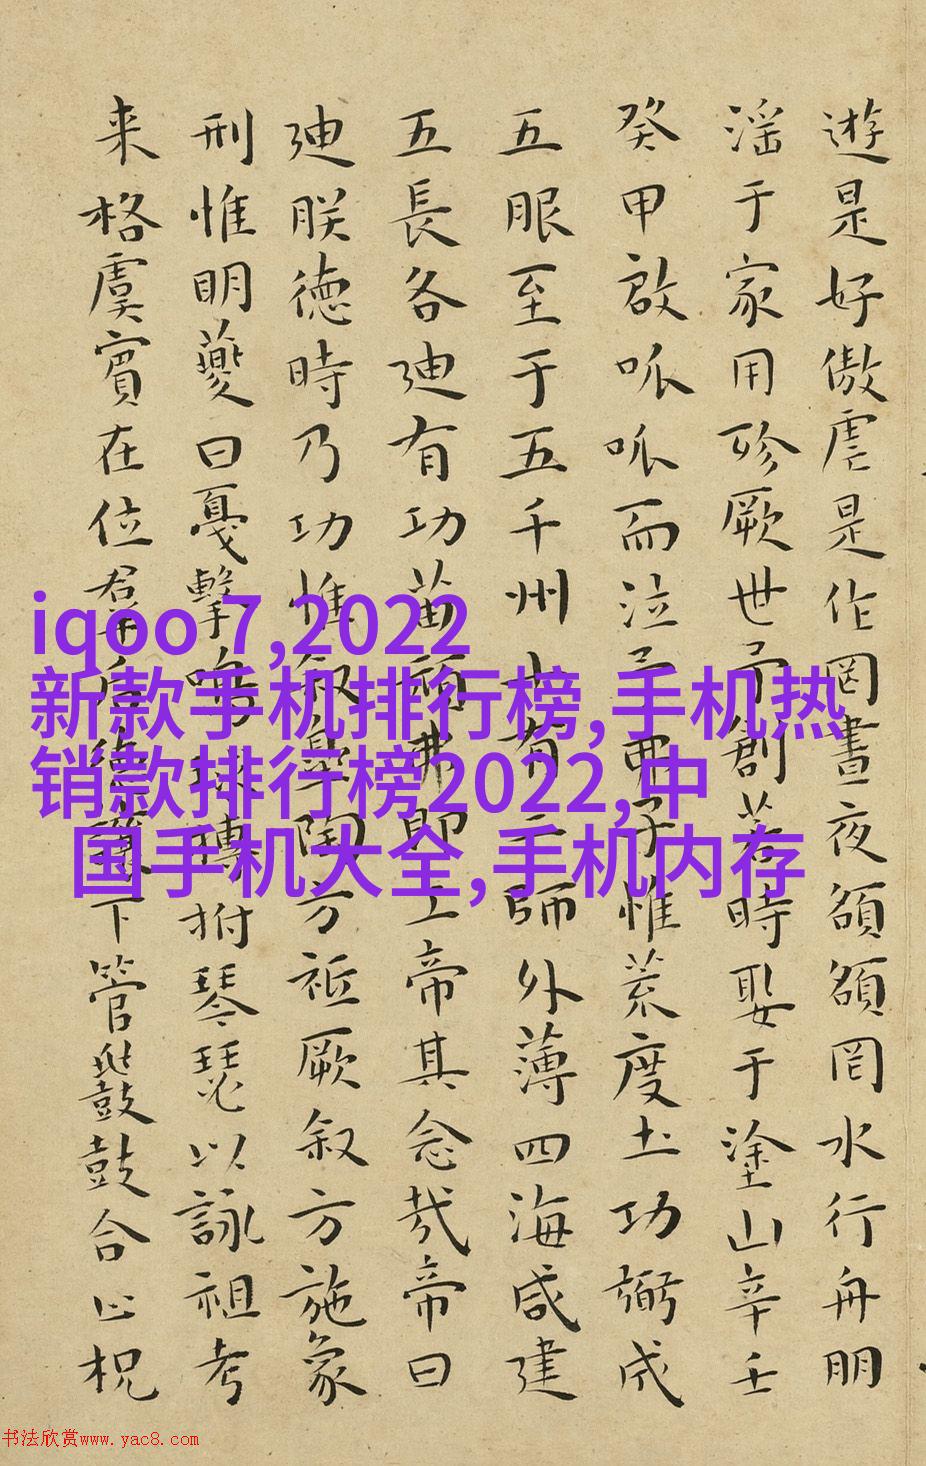 遊是好傲虐是作罔晝夜頟頟罔水行舟朋
淫于家用殄厥世予創若時娶于塗山辛壬
癸甲啟呱呱而泣予弗子惟荒度土功弼成
五服至于五千州十有二師外薄四海咸建
五長各迪有功苗頑弗即工帝其念哉帝曰
迪朕德時乃功惟叙皋陶方祗厥叙方施象
刑惟明夔曰戛擊鳴球搏拊琴瑟以詠祖考
来格虞賓在位羣后德讓下管鼗鼓合止柷
iqoo 7,2022
新款手机排行榜,手机热
销款排行榜2022,中
国手机大全,手机内存
书法欣赏www.yac8.com